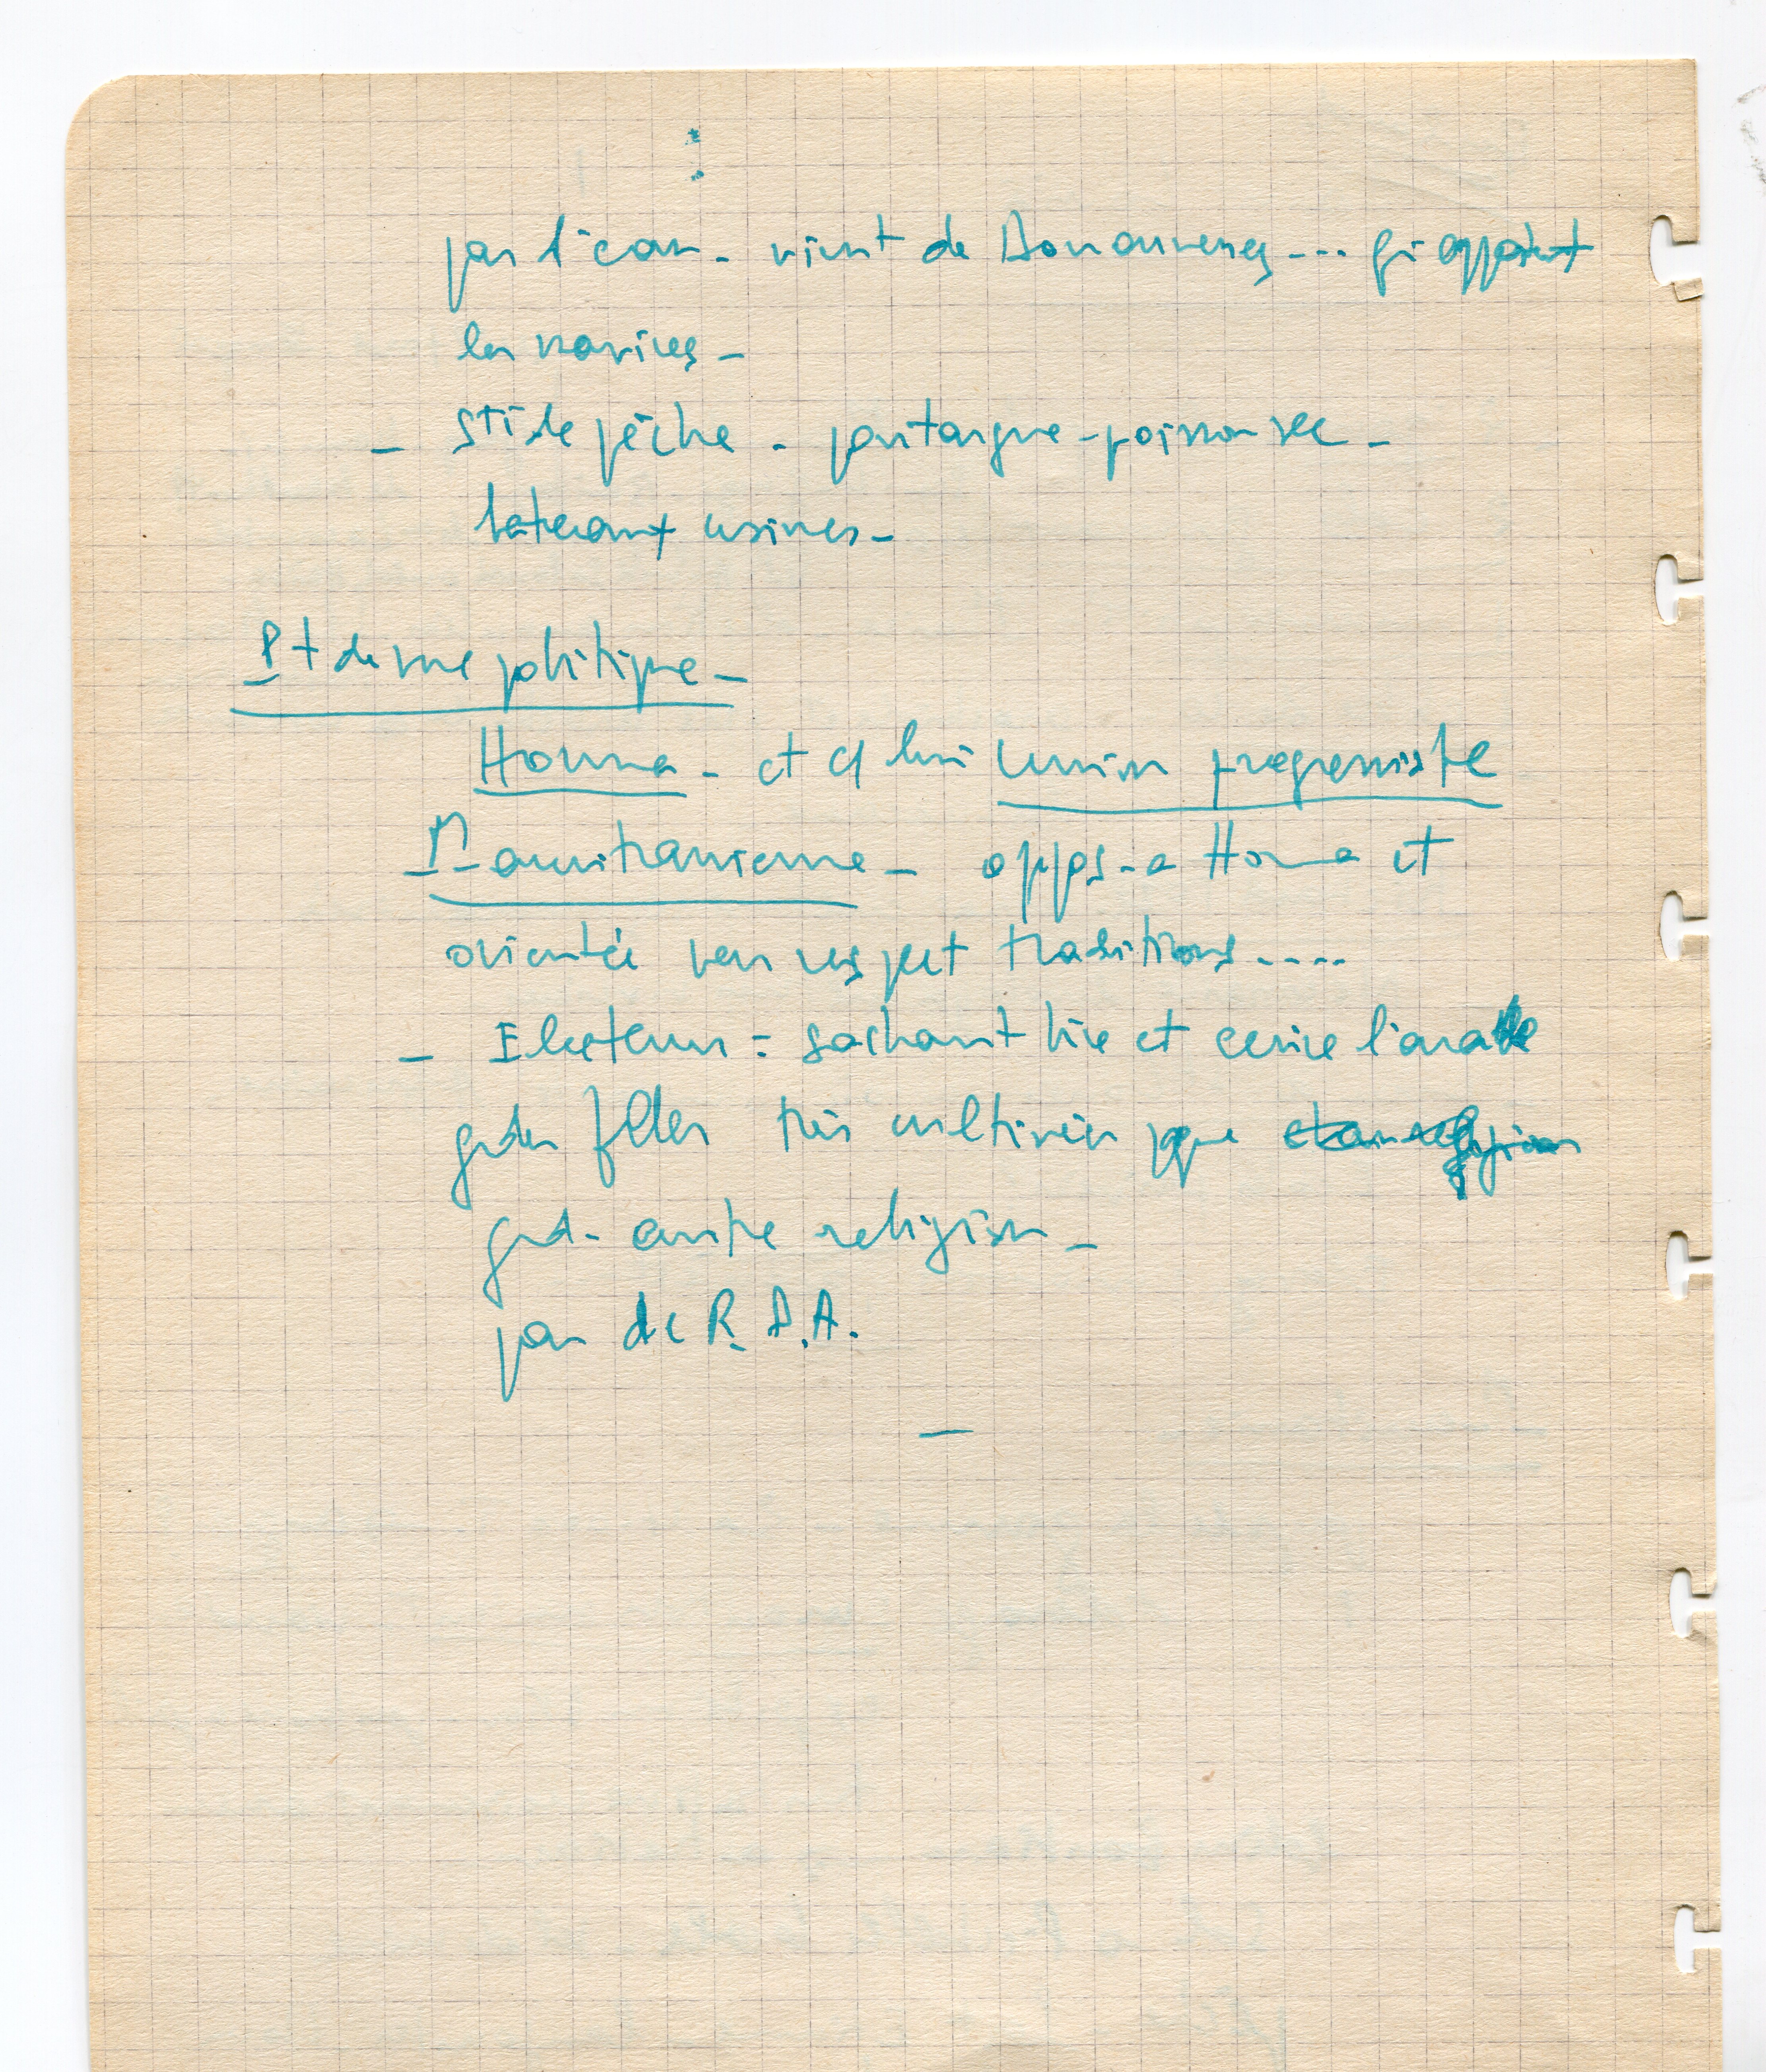 par l'eau - vient de Douarnenez --- qui apportent
les navires -
- Sté de pêche - poutargue - poisson sec -
bateaux usines -
Pt de vue politique -
Horma - et cf lui Union progressiste
Mauritanienne - oppos - a Horma et
orientée vers respect traditions ....
- Electeurs = sachant lire et ecrire l'arabe
gdes très cultivées pque
gd - centre religion -
pas de R.D.A.